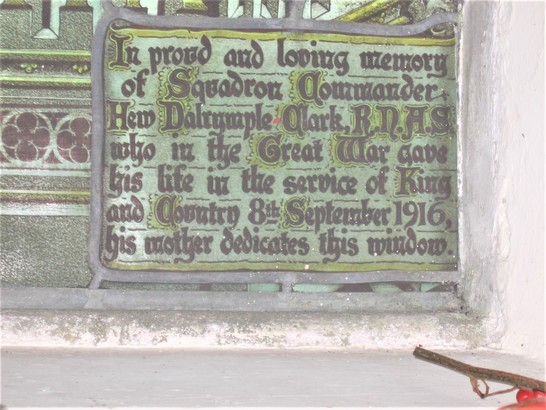 In proud and loving memory
of Squadron Commander
Hew Dalrymple Clark, R.N.A.S.
who in the Great War gave
his life in the service of King
and Country 8th September 1916,
his mother dedicates this window.